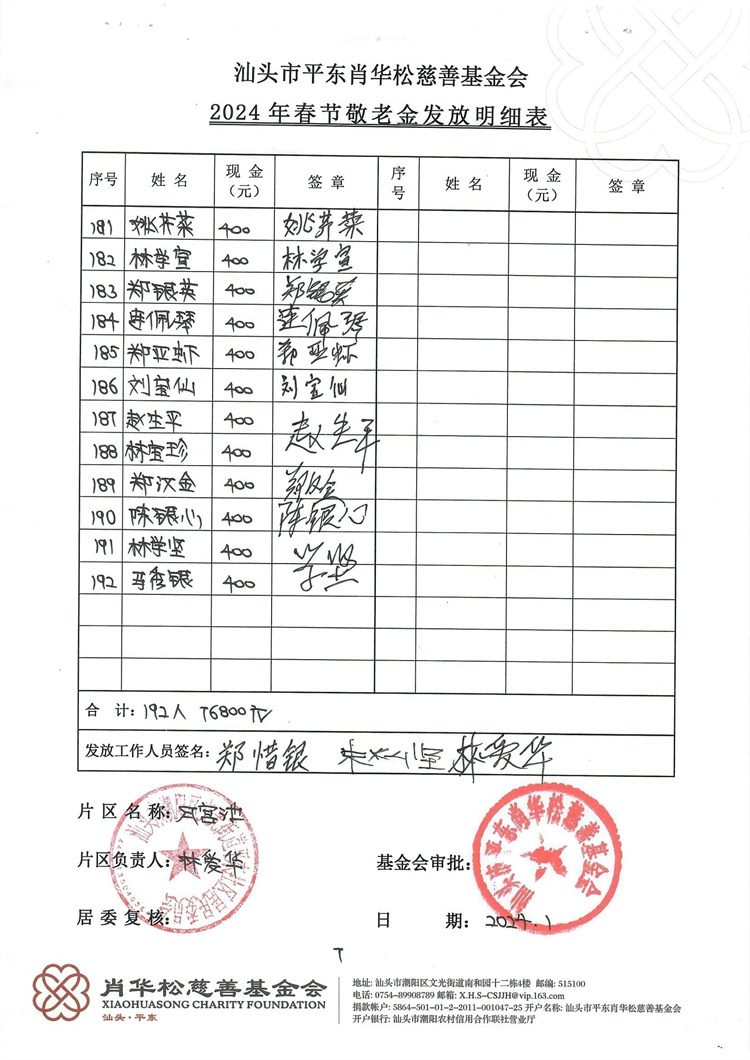 汕头市平东肖华松慈善基金会
2024年春节敬老金发放明细表
序号 姓名 现金（元） 签章 序号 姓名 现金（元） 签章
181 姚芥菜 400 姚芥菜
182 林学宣 400 林学宣
183 郑银英 400 郑银英
184 连佩琴 400 连佩琴
185 郑亚虾 400 郑亚虾
186 刘宝仙 400 刘宝仙
187 赵生平 400 赵生平
188 林宝珍 400
189 郑汉金 400 郑汉金
190 陈银心 400 陈银心
191 林学坚 400 学坚
192 马香银 400
合 计：192人 76800元
发放工作人员签名：郑惜银 林爱华
片区名称：
片区负责人：林爱华
基金会审批：
居委复核：
日 期：2024.1
汕头市平东肖华松慈善基金会
肖华松慈善基金会
XIAOHUASONG CHARITY FOUNDATION
汕头·平东
地址：汕头市潮阳区文光街道南和园十二栋4楼 邮编：515100
电话：0754-89908789 邮箱：X.H.S-CSJJH@vip.163.com
捐款帐户：5864-501-01-2-2011-001047-25 开户名称：汕头市平东肖华松慈善基金会
开户银行：汕头市潮阳农村信用合作联社营业厅